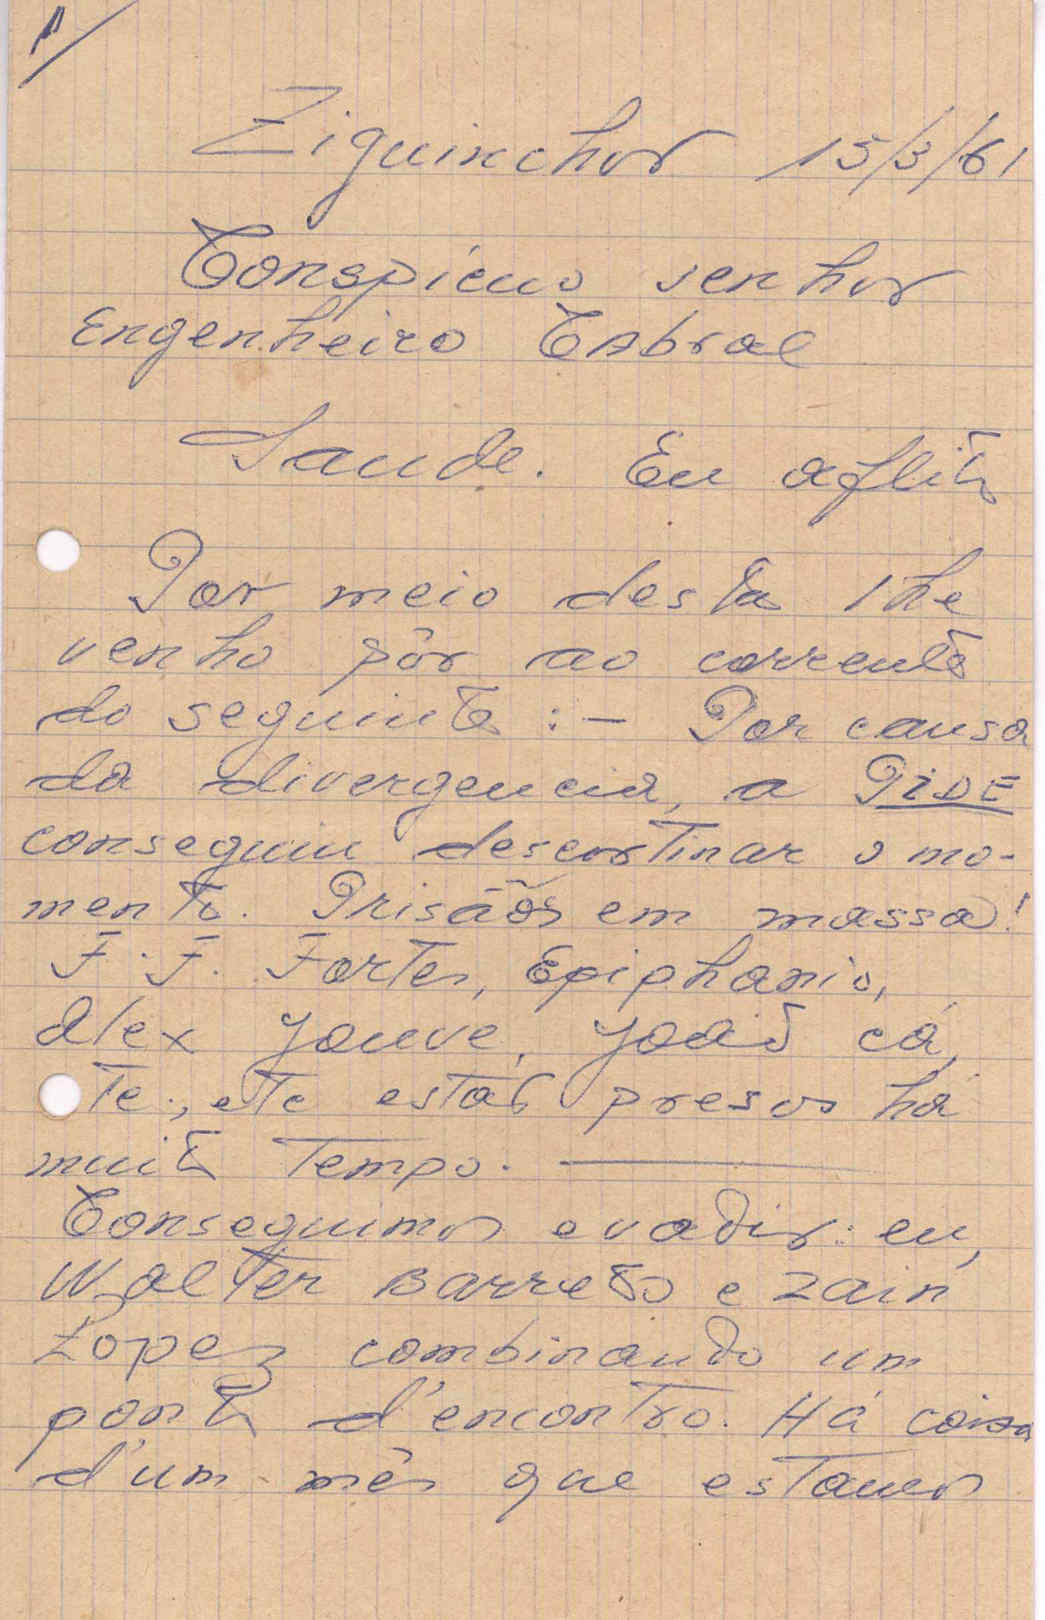 1/
Ziguinchor 15/3/61
Conspícuo senhor
Engenheiro Cabral
Saude. Eu aflito
Por meio desta lhe
venho pôr ao corrente
do seguinte :- Por causa
da divergencia, a PIDE
conseguiu descortinar o mo-
mento. Prisões em massa!
F. F. Fortes, Epiphanio,
Alex Jouve, João cá,
Te., etc estão presos há
muito tempo.
Conseguimos evadir: eu,
Walter Barreto e Zain
Lopez combinando um
ponto d'encontro. Há coisa
d'um mês que estamos